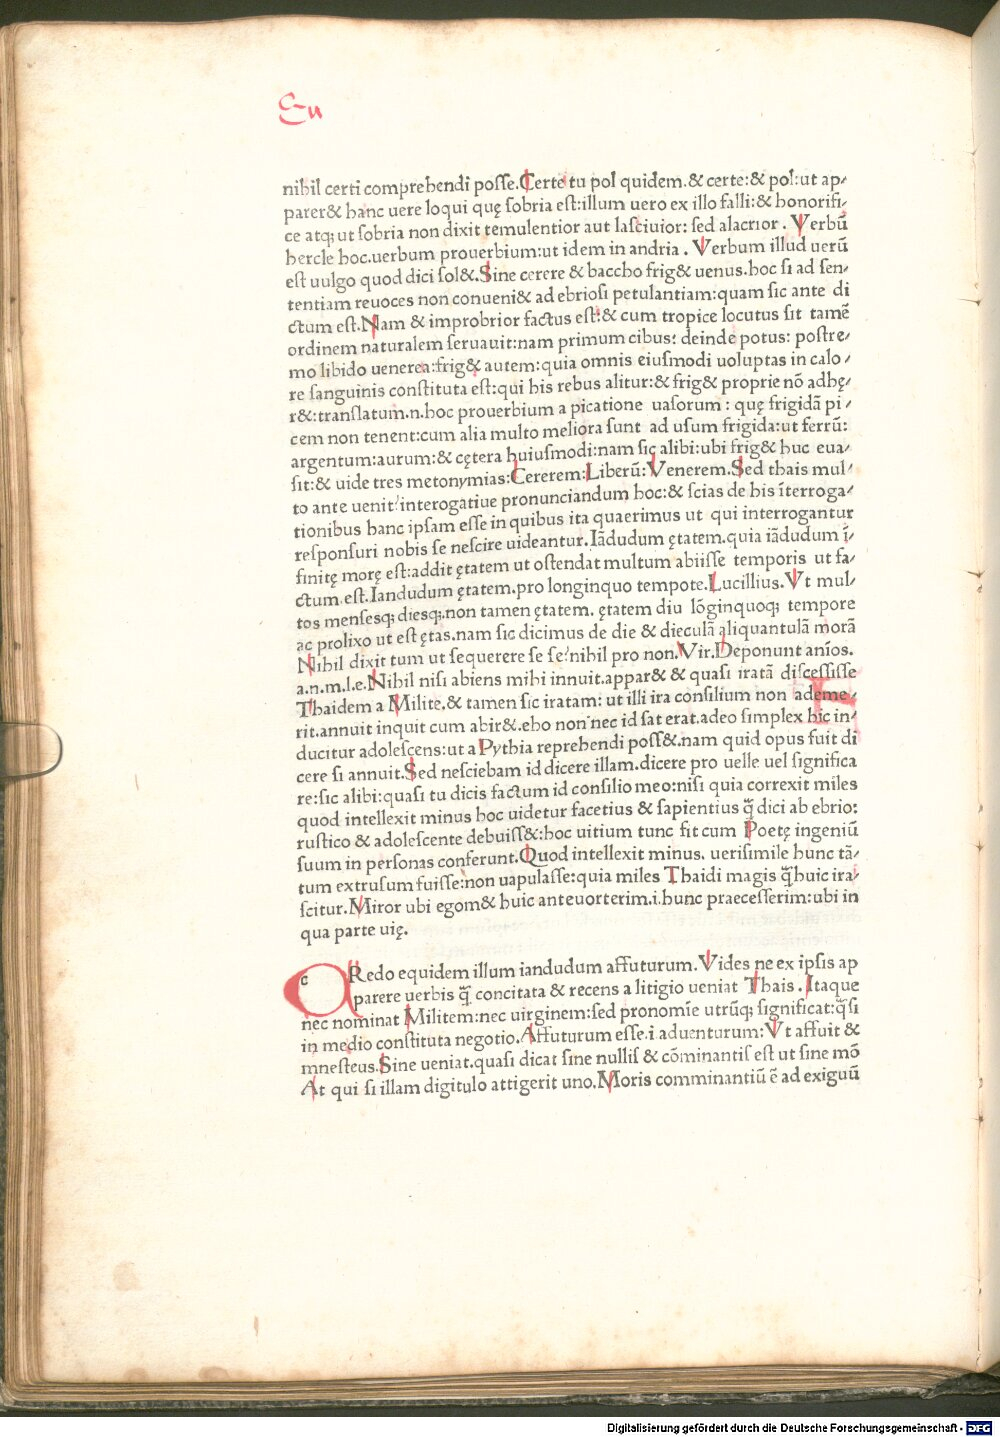 Eu
nihil certi comprehendi posse.Certe tu pol quidem.& certe:& pol:ut ap-
parer& hanc uere loqui quę sobria est:illum uero ex illo falli:& honorifi-
ce atq; ut sobria non dixit temulentior aut lasciuior: sed alacrior. Verbū
hercle hoc.uerbum prouerbium:ut idem in andria. Verbum illud uerū
est uulgo quod dici sol&.Sine cerere & baccho frig& uenus.hoc si ad sen-
tentiam reuoces non conueni& ad ebriosi petulantiam:quam sic ante di
ctum est.Nam & improbrior factus est:& cum tropice locutus sit tamē
ordinem naturalem seruauit:nam primum cibus: deinde potus: postre-
mo libido uenerea:frig& autem:quia omnis eiusmodi uoluptas in calo-
re sanguinis constituta est:qui his rebus alitur:& frig& proprie nō adhę-
r&:translatum.n.hoc prouerbium a picatione uasorum: quę frigidā pi-
cem non tenent:cum alia multo meliora sunt ad usum frigida:ut ferrū:
argentum:aurum:& cętera huiusmodi:nam sic alibi:ubi frig& huc eua-
sit:& uide tres metonymias:Cererem:Liberū:Venerem.Sed thais mul-
to ante uenit?interogatiue pronunciandum hoc:& scias de his īterroga-
tionibus hanc ipsam esse in quibus ita quaerimus ut qui interrogantur
responsuri nobis se nescire uideantur.Iādudum ętatem.quia iādudum ī-
finitę morę est:addit ętatem ut ostendat multum abiisse temporis ut fa-
ctum est.Iandudum ętatem.pro longinquo tempote.Lucillius.Vt mul-
tos mensesq; diesq;.non tamen ętatem. ętatem diu lōginquoq; tempore
ac prolixo ut est ętas.nam sic dicimus de die & dieculā aliquantulā morā
Nihil dixit tum ut sequerere se se?nihil pro non.Vir.Deponunt anīos.
a.n.m.l.e.Nihil nisi abiens mihi innuit.appar& & quasi iratā discessisse
Thaidem a Milite.& tamen sic iratam: ut illi ira consilium non ademe-
rit.annuit inquit cum abir&.eho non nec id sat erat.adeo simplex hic in-
ducitur adolescens:ut a Pythia reprehendi poss&.nam quid opus fuit di
cere si annuit.Sed nesciebam id dicere illam.dicere pro uelle uel significa
re:sic alibi:quasi tu dicis factum id consilio meo:nisi quia correxit miles
quod intellexit minus hoc uidetur facetius & sapientius q̄ dici ab ebrio:
rustico & adolescente debuiss&:hoc uitium tunc fit cum Poetę ingeniū
suum in personas conferunt.Quod intellexit minus. uerisimile hunc tā-
tum extrusum fuisse:non uapulasse:quia miles Thaidi magis q̄ huic ira-
scitur.Miror ubi egom& huic anteuorterim.i.hunc praecesserim:ubi in
qua parte uię.
c
REdo equidem illum iandudum affuturum.Vides ne ex ipsis ap
parere uerbis q̄ concitata & recens a litigio ueniat Thais. Itaque
nec nominat Militem:nec uirginem:sed pronomīe utrūq; significat:q̄si
in medio constituta negotio.Affuturum esse.i.aduenturum:Vt affuit &
mnesteus.Sine ueniat.quasi dicat sine nullis & cōminantis est ut sine mō
At qui si illam digitulo attigerit uno.Moris comminantiū ē ad exiguū
Digitalisierung gefördert durch die Deutsche Forschungsgemeinschaft - DFG